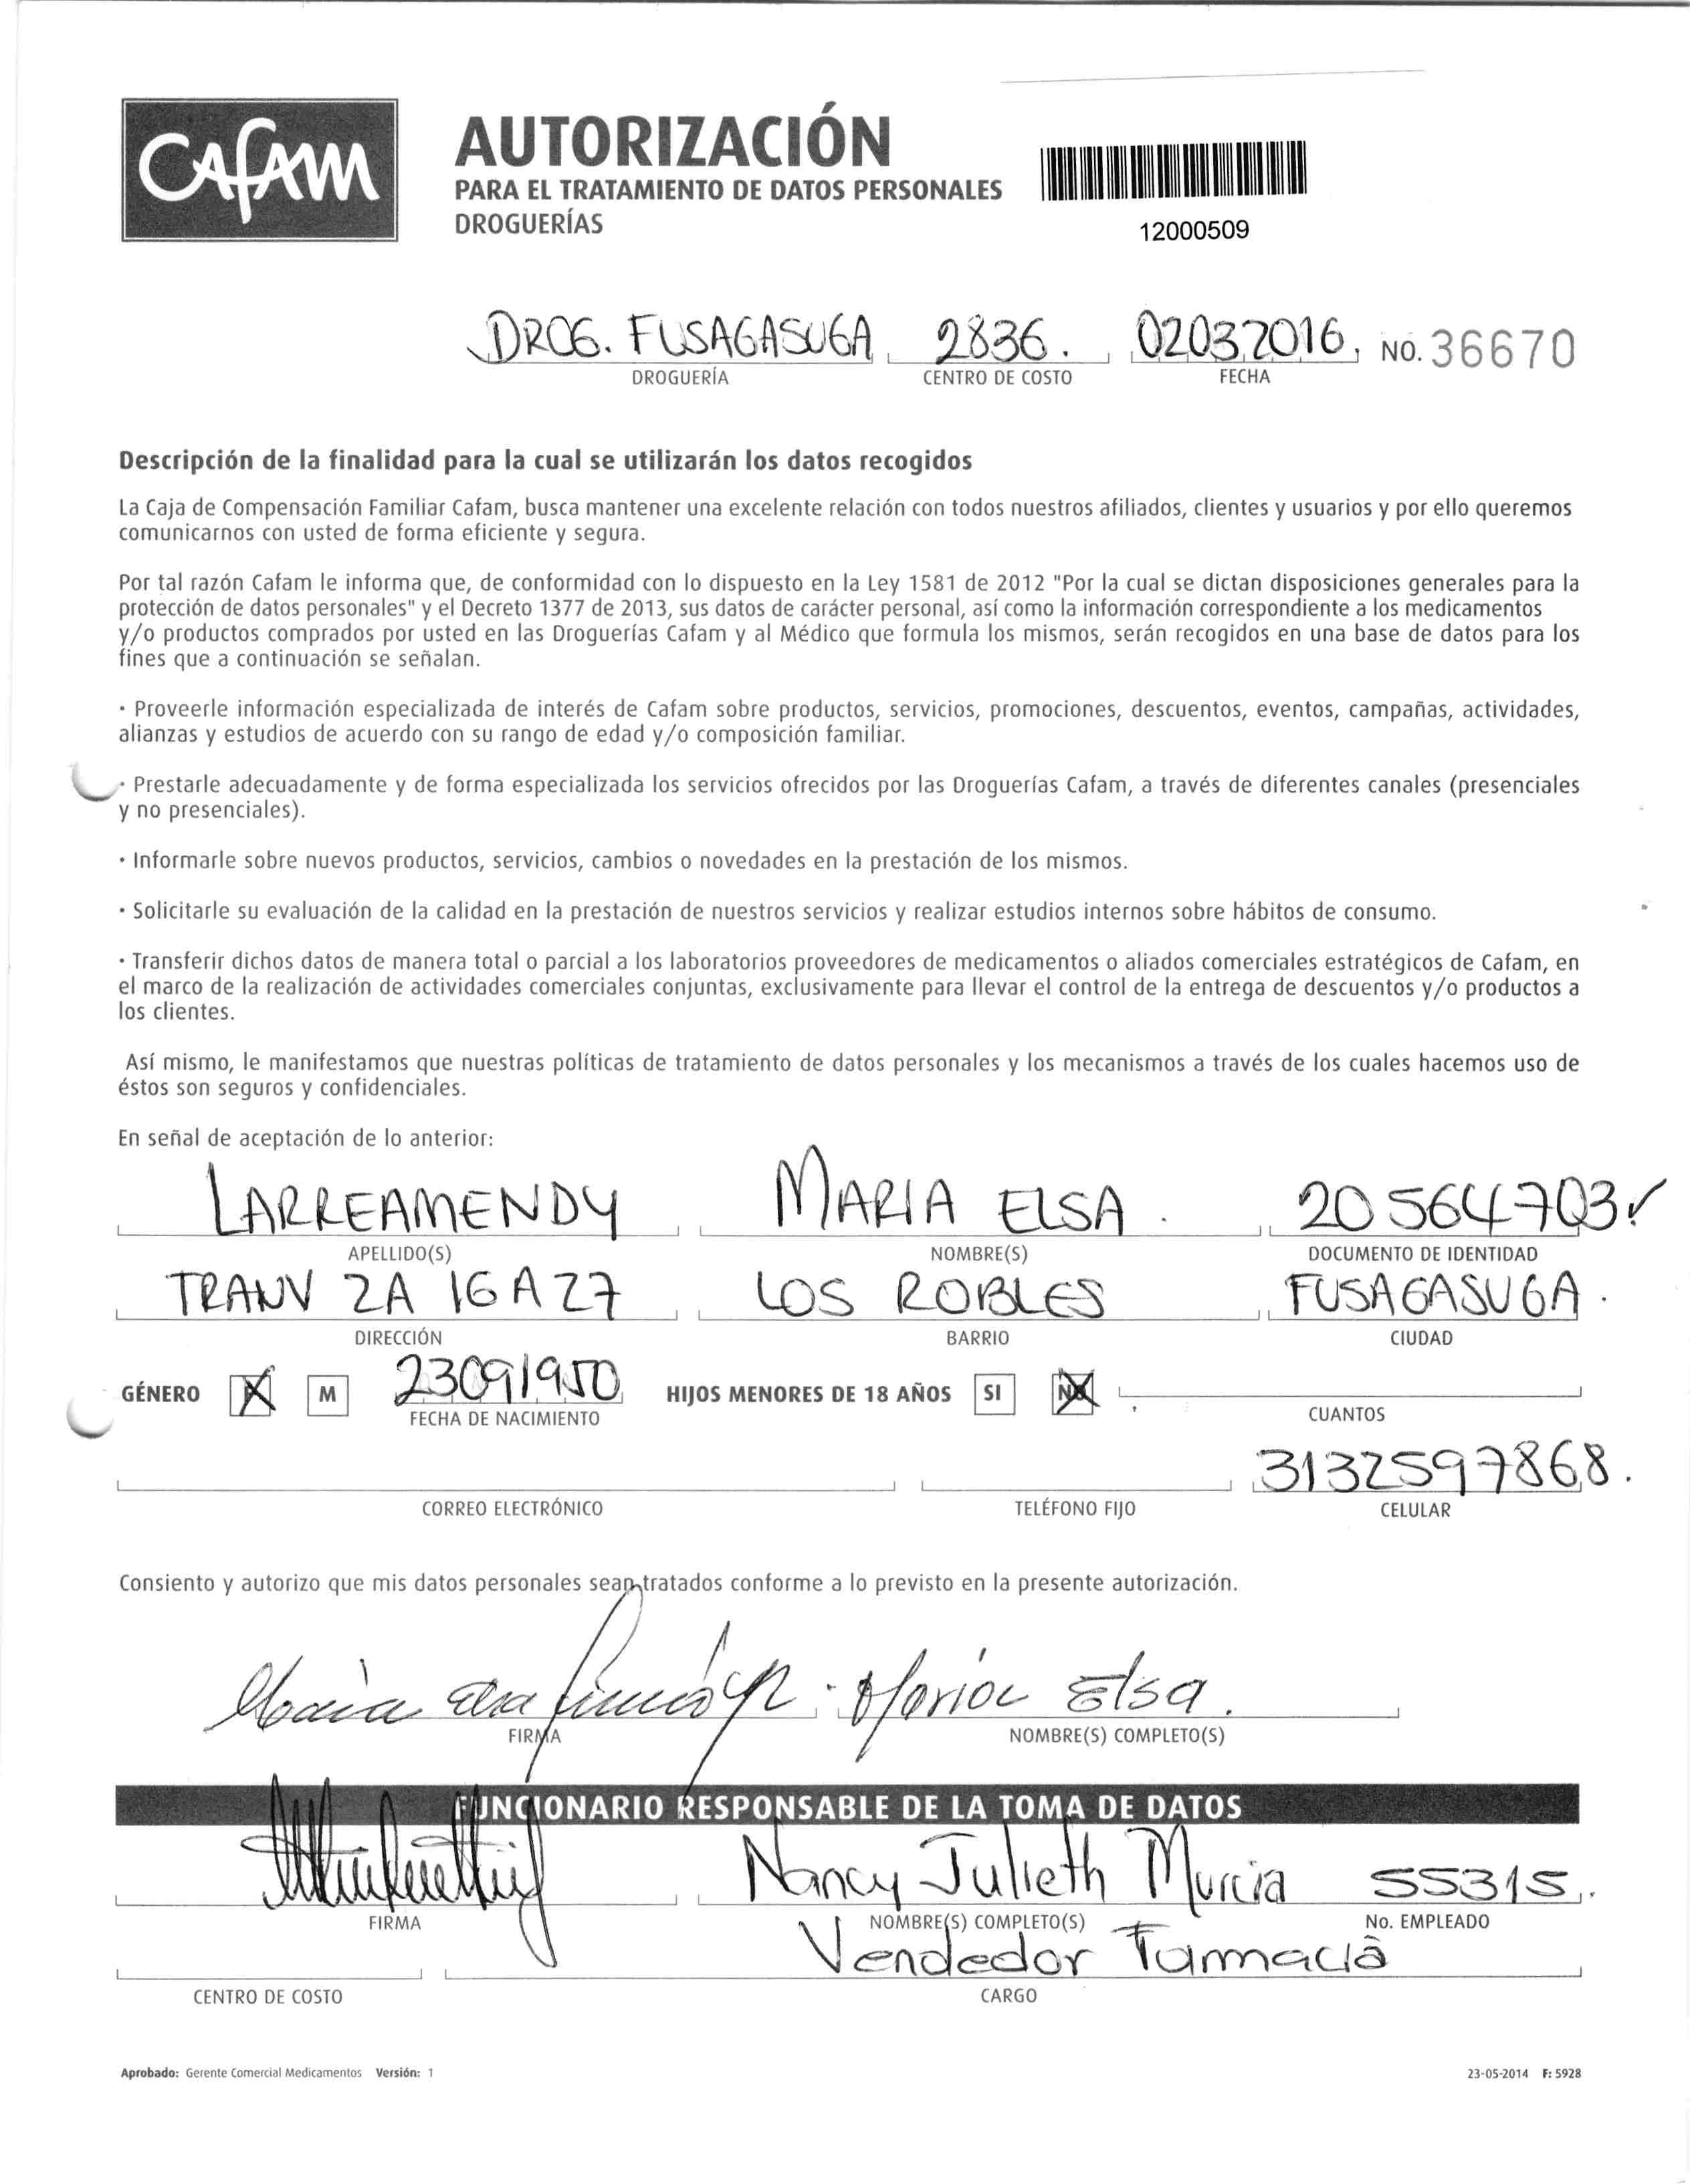 CAFAM
AUTORIZACIÓN
PARA EL TRATAMIENTO DE DATOS PERSONALES
DROGUERÍAS
12000509
DROG. FUSAGASUGA 2836. 02032016. NO. 36670
DROGUERÍA CENTRO DE COSTO FECHA
Descripción de la finalidad para la cual se utilizarán los datos recogidos
La Caja de Compensación Familiar Cafam, busca mantener una excelente relación con todos nuestros afiliados, clientes y usuarios y por ello queremos
comunicarnos con usted de forma eficiente y segura.
Por tal razón Cafam le informa que, de conformidad con lo dispuesto en la Ley 1581 de 2012 "Por la cual se dictan disposiciones generales para la
protección de datos personales" y el Decreto 1377 de 2013, sus datos de carácter personal, así como la información correspondiente a los medicamentos
y/o productos comprados por usted en las Droguerías Cafam y al Médico que formula los mismos, serán recogidos en una base de datos para los
fines que a continuación se señalan.
· Proveerle información especializada de interés de Cafam sobre productos, servicios, promociones, descuentos, eventos, campañas, actividades,
alianzas y estudios de acuerdo con su rango de edad y/o composición familiar.
· Prestarle adecuadamente y de forma especializada los servicios ofrecidos por las Droguerías Cafam, a través de diferentes canales (presenciales
y no presenciales).
· Informarle sobre nuevos productos, servicios, cambios o novedades en la prestación de los mismos.
· Solicitarle su evaluación de la calidad en la prestación de nuestros servicios y realizar estudios internos sobre hábitos de consumo.
· Transferir dichos datos de manera total o parcial a los laboratorios proveedores de medicamentos o aliados comerciales estratégicos de Cafam, en
el marco de la realización de actividades comerciales conjuntas, exclusivamente para llevar el control de la entrega de descuentos y/o productos a
los clientes.
Así mismo, le manifestamos que nuestras políticas de tratamiento de datos personales y los mecanismos a través de los cuales hacemos uso de
éstos son seguros y confidenciales.
En señal de aceptación de lo anterior:
LARREAMENDY MARIA ELSA. 20 564703
APELLIDO(S) NOMBRE(S) DOCUMENTO DE IDENTIDAD
TRANV 2A 16 A 27 LOS ROBLES FUSAGASUGA.
DIRECCIÓN BARRIO CIUDAD
GÉNERO F M 23091950 HIJOS MENORES DE 18 AÑOS SI NO
FECHA DE NACIMIENTO CUANTOS
3132597868.
CORREO ELECTRÓNICO TELÉFONO FIJO CELULAR
Consiento y autorizo que mis datos personales sean tratados conforme a lo previsto en la presente autorización.
Maria Elsa Maria Elsa.
FIRMA NOMBRE(S) COMPLETO(S)
FUNCIONARIO RESPONSABLE DE LA TOMA DE DATOS
Nancy Julieth Murcia 55315.
FIRMA NOMBRE(S) COMPLETO(S) No. EMPLEADO
Vendedor Farmacia
CENTRO DE COSTO CARGO
Aprobado: Gerente Comercial Medicamentos Versión: 1 23-05-2014 F: 5928